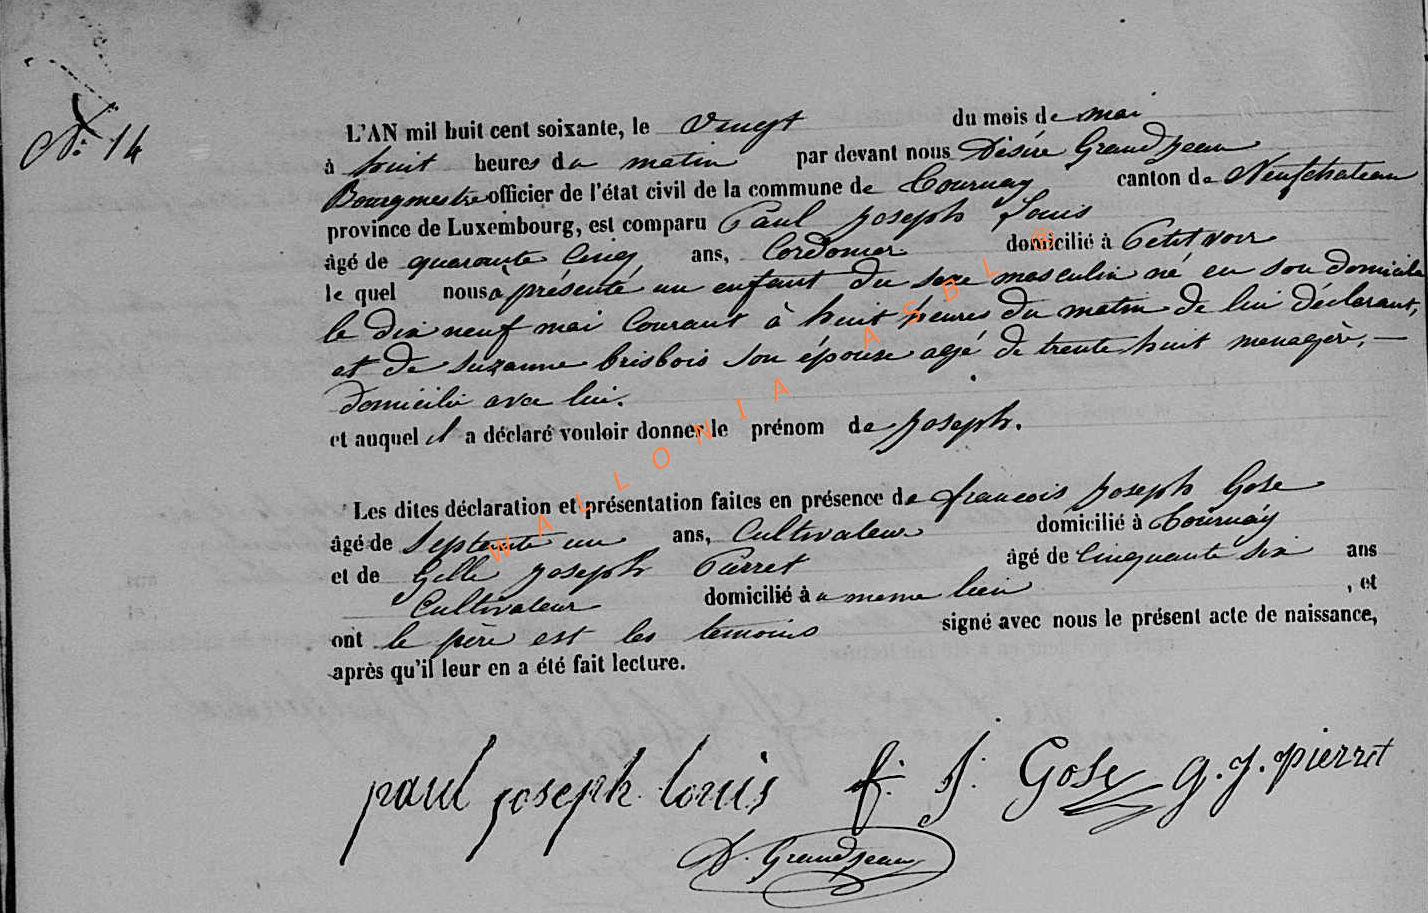 N° 14
L'AN mil huit cent soixante, le vingt du mois de mai
à huit heures du matin par devant nous Désiré Grandjean
Bourgmestre officier de l'état civil de la commune de Tournay canton de Neufchateau
province de Luxembourg, est comparu Paul Joseph Louis
âgé de quarante cinq ans, Cordonier domicilié à Petitvoir
le quel nous a présenté un enfant du sexe masculin né en son domicile
le dix neuf mai Courant à huit heures du matin de lui déclarant,
et de Suzanne brisbois son épouse agé de trente huit menagère,
domicilié avec lui.
et auquel il a déclaré vouloir donner le prénom de joseph.
Les dites déclaration et présentation faites en présence de françois joseph Gose
âgé de septante un ans, Cultivateur domicilié à Tournay
et de Gille joseph Pierret âgé de cinquante six ans
Cultivateur domicilié à u meme lieu , et
ont le père est les temoins signé avec nous le présent acte de naissance,
après qu'il leur en a été fait lecture.
paul joseph louis f. J. Gose g. J. pierret
D. Grandjean
WALLONIA ASBL ©